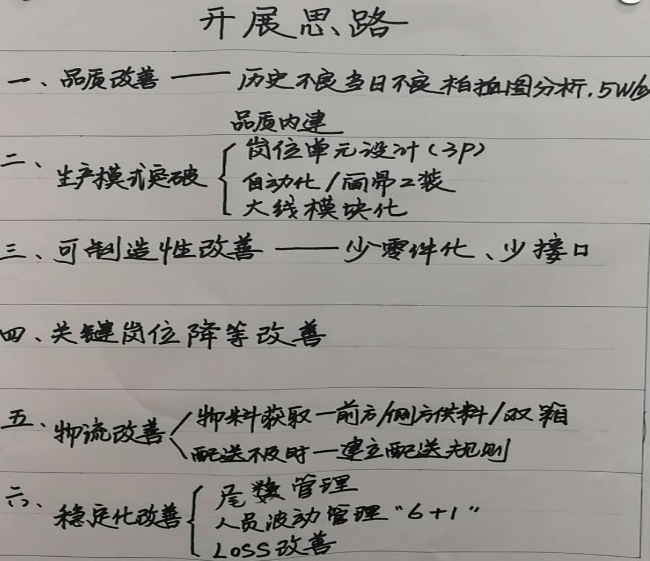 开展思路
一、品质改善 —— 历史不良当日不良柏拉图分析.5Why
品质内建
二、生产模式突破
岗位单元设计(3P)
自动化/工装
大线模块化
三、可制造性改善 —— 少零件化、少接口
四、关键岗位降等改善
五、物流改善
物料获取—前方/侧方供料/双箱
配送不及时—建立配送规则
六、稳定化改善
尾数管理
人员波动管理"6+1"
LOSS改善